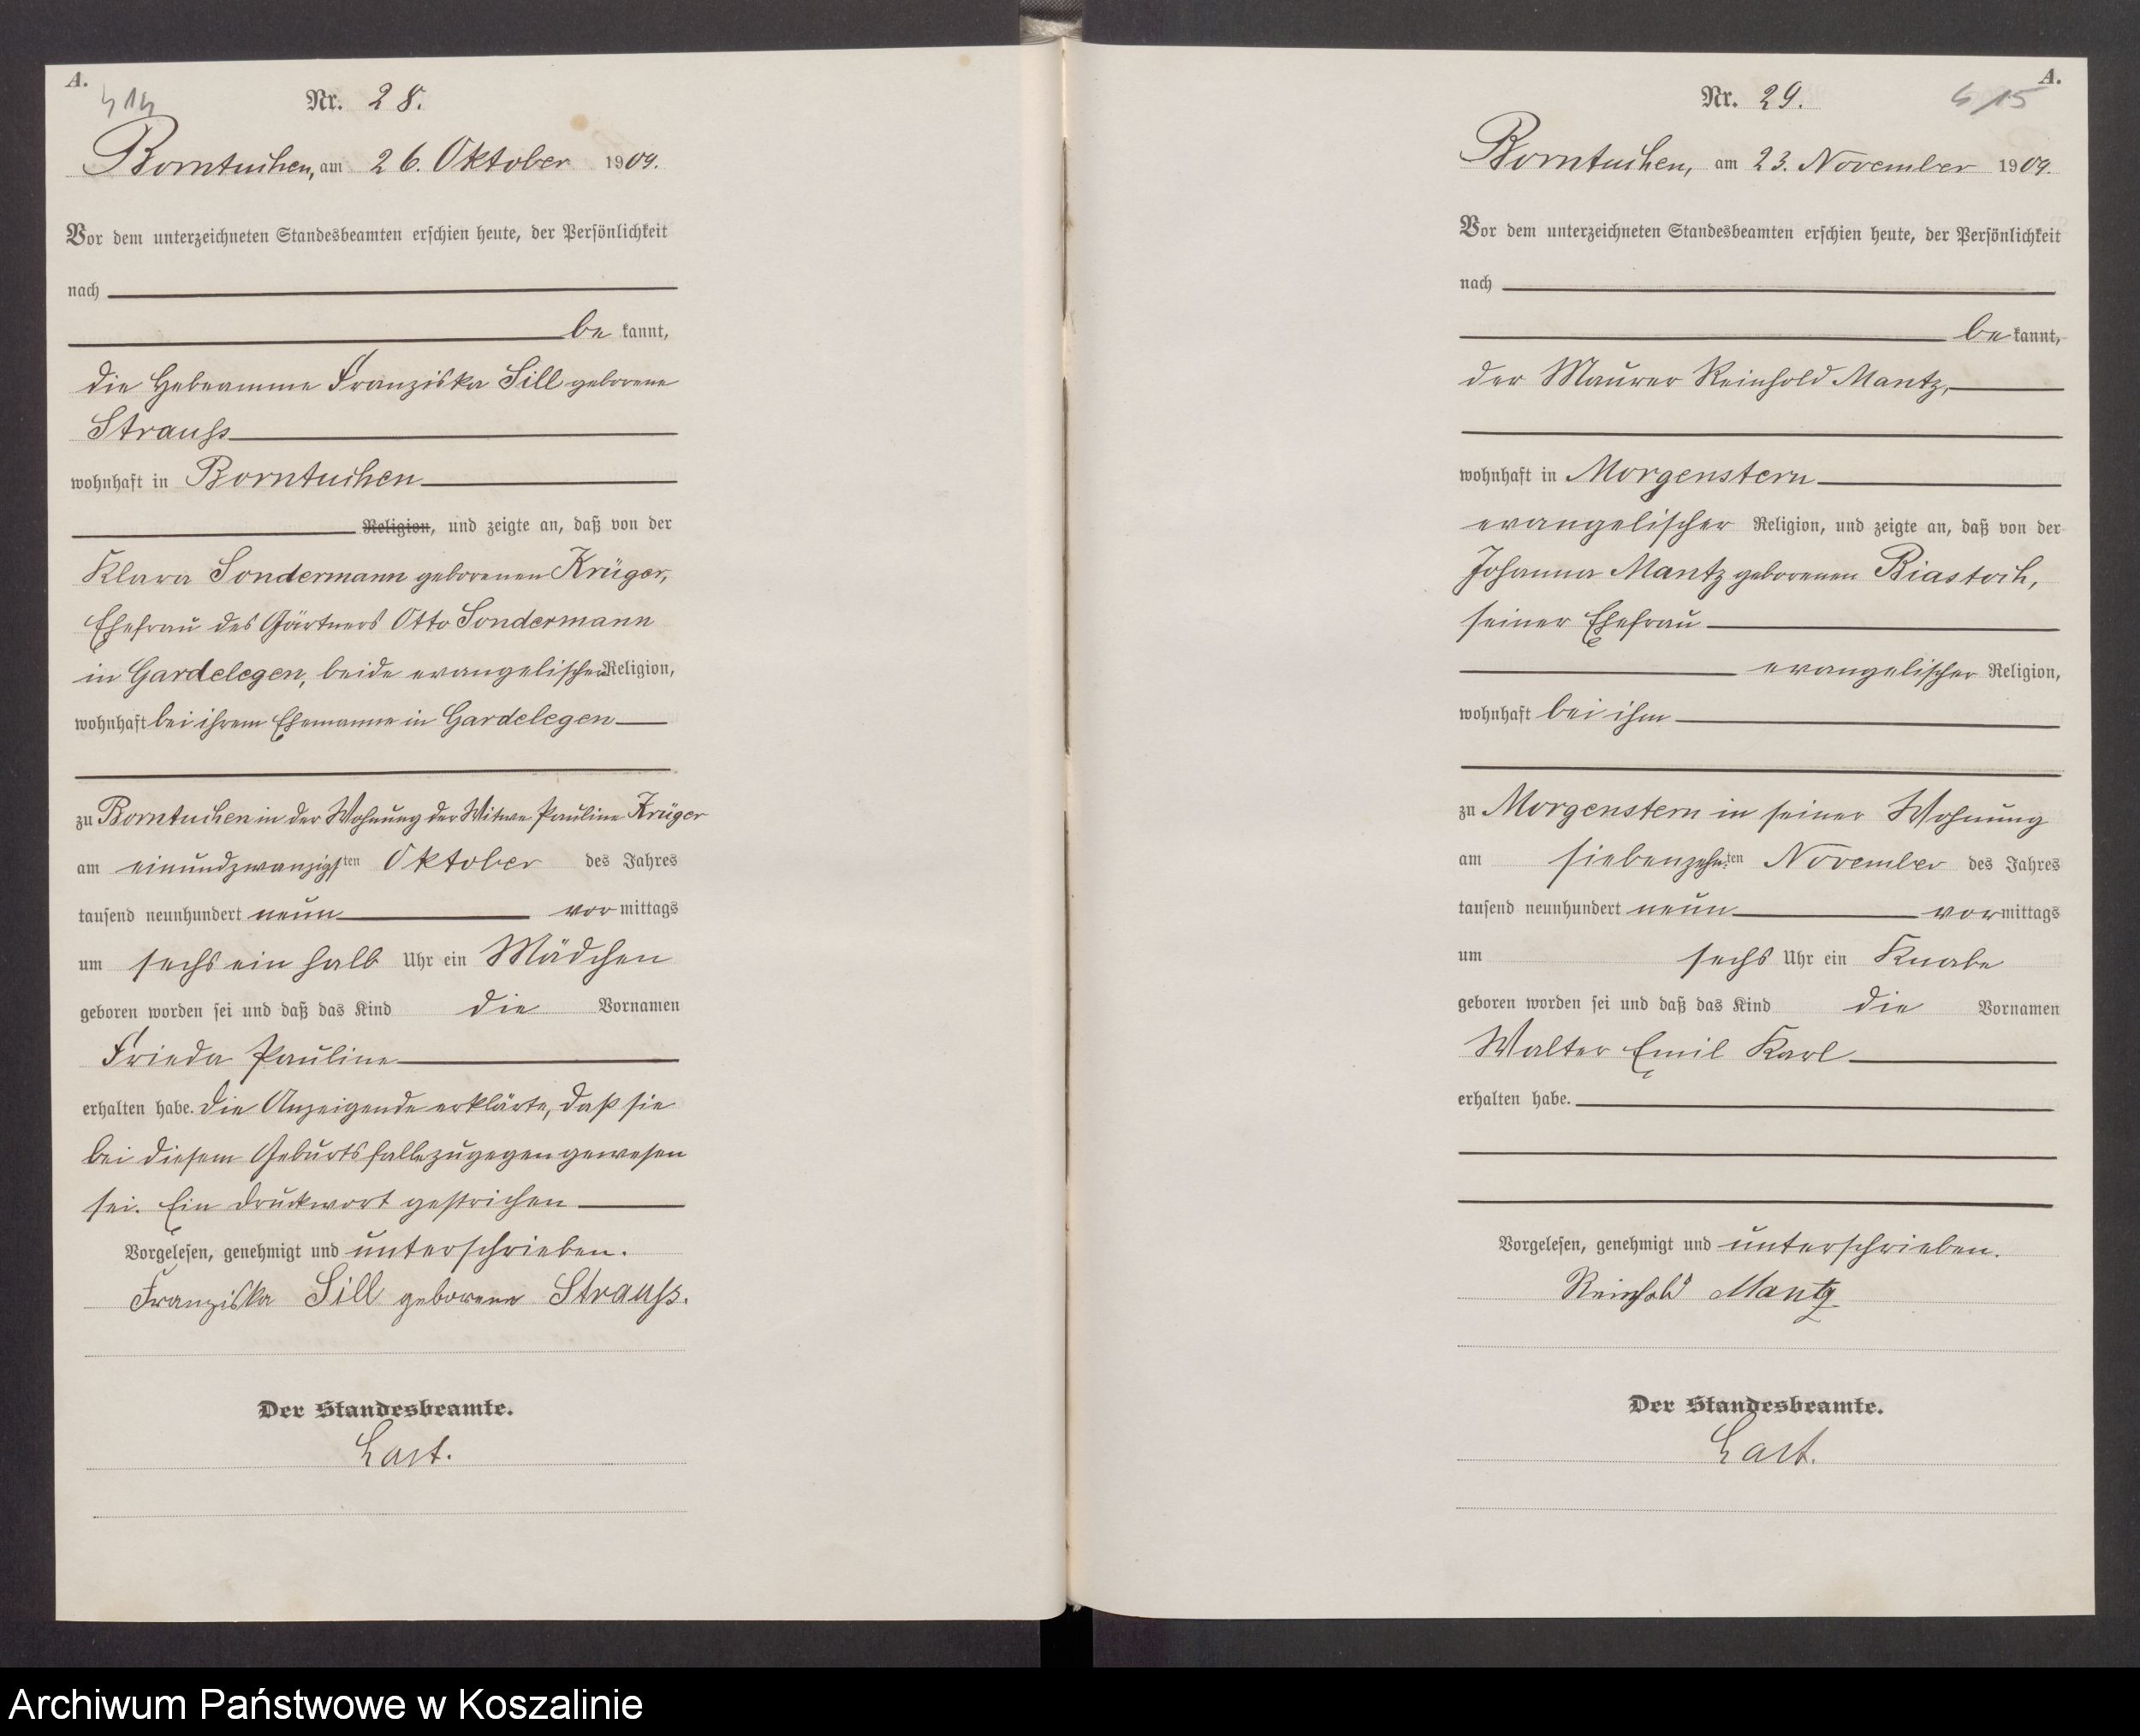 A.
414
Nr. 28.
Borntuchen, am 26. Oktober 1909.
Vor dem unterzeichneten Standesbeamten erschien heute, der Persönlichkeit
nach
be kannt,
die Hebeamme Franziska Sill geborene
Strauss
wohnhaft in Borntuchen
Religion, und zeigte an, daß von der
Klara Sondermann geborenen Krüger,
Ehefrau des Gärtners Otto Sondermann
in Gardelegen, beide evangelischer Religion,
wohnhaft bei ihrem Ehemanne in Gardelegen
zu Borntuchen in der Wohnung der Witwe Pauline Krüger
am einundzwanzigsten Oktober des Jahres
tausend neunhundert neun vor mittags
um sechs ein halb Uhr ein Mädchen
geboren worden sei und daß das Kind die Vornamen
Frieda Pauline
erhalten habe. Die Anzeigende erklärte, daß sie
bei diesem Geburtsfalle zugegen gewesen
sei. Ein Druckwort gestrichen
Vorgelesen, genehmigt und unterschrieben.
Franziska Sill geborene Strauss.
Der Standesbeamte.
Last.
A.
415
Nr. 29.
Borntuchen, am 23. November 1909.
Vor dem unterzeichneten Standesbeamten erschien heute, der Persönlichkeit
nach
be kannt,
der Maurer Reinhold Mantz,
wohnhaft in Morgenstern
evangelischer Religion, und zeigte an, daß von der
Johanna Mantz geborenen Biastoch,
seiner Ehefrau
evangelischer Religion,
wohnhaft bei ihm
zu Morgenstern in seiner Wohnung
am siebenzehnten November des Jahres
tausend neunhundert neun vormittags
um sechs Uhr ein Knabe
geboren worden sei und daß das Kind die Vornamen
Walter Emil Karl
erhalten habe.
Vorgelesen, genehmigt und unterschrieben.
Reinhold Mantz
Der Standesbeamte.
Last.
Archiwum Państwowe w Koszalinie